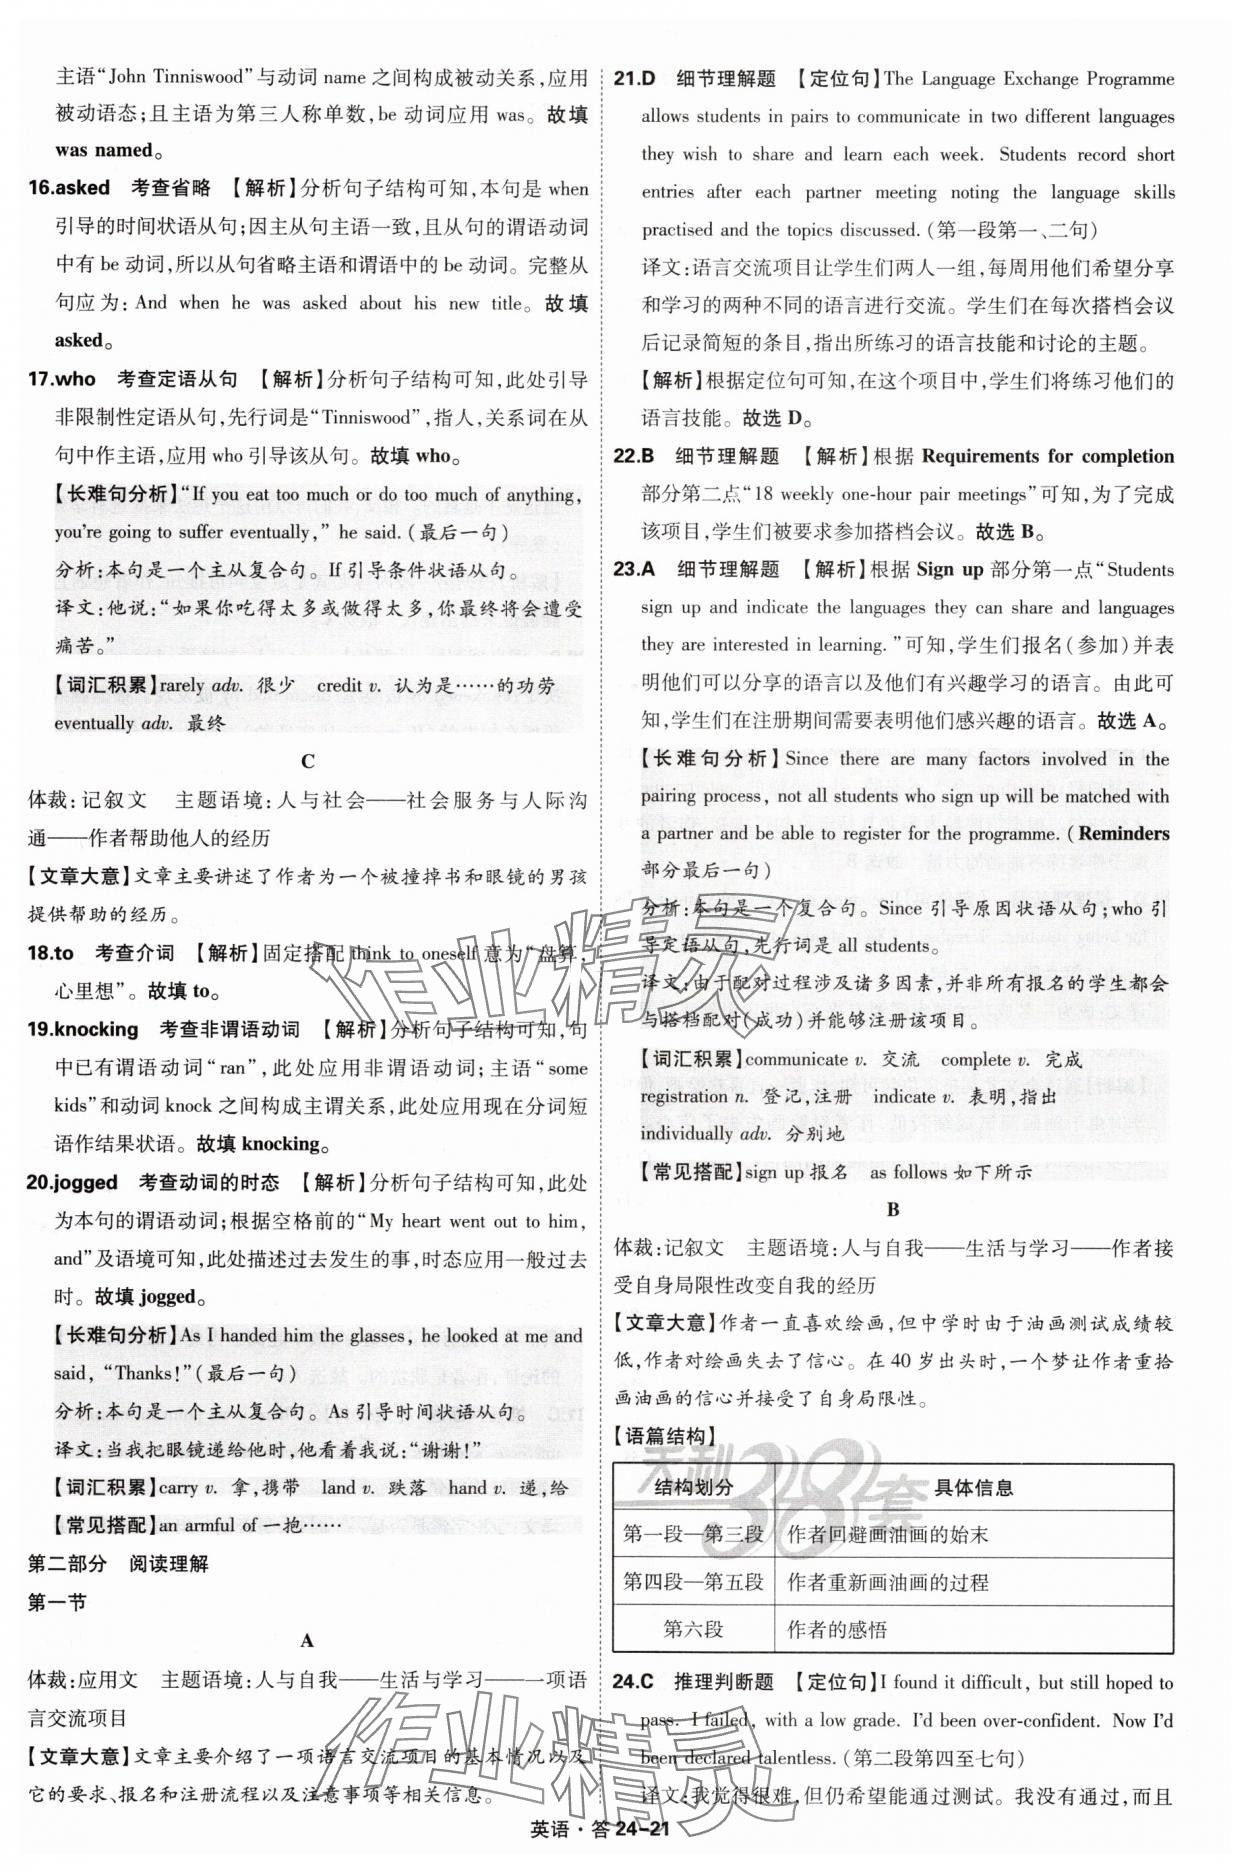 主语“John Tinniswood”与动词 name 之间构成被动关系,应用
被动语态;且主语为第三人称单数,be 动词应用 was。故填
was named。
16.asked 考查省略 【解析】分析句子结构可知,本句是 when
引导的时间状语从句;因主从句主语一致,且从句的谓语动词
中有 be 动词,所以从句省略主语和谓语中的 be 动词。完整从
句应为: And when he was asked about his new title。故填
asked。
17.who 考查定语从句 【解析】分析句子结构可知,此处引导
非限制性定语从句,先行词是“Tinniswood”,指人,关系词在从
句中作主语,应用 who 引导该从句。故填 who。
【长难句分析】“If you eat too much or do too much of anything,
you're going to suffer eventually,” he said.(最后一句)
分析:本句是一个主从复合句。If 引导条件状语从句。
译文:他说:“如果你吃得太多或做得太多,你最终将会遭受
痛苦。”
【词汇积累】rarely adv. 很少 credit v. 认为是……的功劳
eventually adv. 最终
C
体裁:记叙文 主题语境:人与社会——社会服务与人际沟
通——作者帮助他人的经历
【文章大意】文章主要讲述了作者为一个被撞掉书和眼镜的男孩
提供帮助的经历。
18.to 考查介词 【解析】固定搭配 think to oneself 意为“盘算,
心里想”。故填 to。
19.knocking 考查非谓语动词 【解析】分析句子结构可知,句
中已有谓语动词“ran”,此处应用非谓语动词;主语“some
kids”和动词 knock 之间构成主谓关系,此处应用现在分词短
语作结果状语。故填 knocking。
20.jogged 考查动词的时态 【解析】分析句子结构可知,此处
为本句的谓语动词;根据空格前的“My heart went out to him,
and”及语境可知,此处描述过去发生的事,时态应用一般过去
时。故填 jogged。
【长难句分析】As I handed him the glasses, he looked at me and
said, “Thanks!”(最后一句)
分析:本句是一个主从复合句。As 引导时间状语从句。
译文:当我把眼镜递给他时,他看着我说:“谢谢!”
【词汇积累】carry v. 拿,携带 land v. 跌落 hand v. 递,给
【常见搭配】an armful of 一抱……
第二部分 阅读理解
第一节
A
体裁:应用文 主题语境:人与自我——生活与学习——一项语
言交流项目
【文章大意】文章主要介绍了一项语言交流项目的基本情况以及
它的要求、报名和注册流程以及注意事项等相关信息。
21.D 细节理解题 【定位句】The Language Exchange Programme
allows students in pairs to communicate in two different languages
they wish to share and learn each week. Students record short
entries after each partner meeting noting the language skills
practised and the topics discussed.(第一段第一、二句)
译文:语言交流项目让学生们两人一组,每周用他们希望分享
和学习的两种不同的语言进行交流。学生们在每次搭档会议
后记录简短的条目,指出所练习的语言技能和讨论的主题。
【解析】根据定位句可知,在这个项目中,学生们将练习他们的
语言技能。故选 D。
22.B 细节理解题 【解析】根据 Requirements for completion
部分第二点“18 weekly one-hour pair meetings”可知,为了完成
该项目,学生们被要求参加搭档会议。故选 B。
23.A 细节理解题 【解析】根据 Sign up 部分第一点“Students
sign up and indicate the languages they can share and languages
they are interested in learning.”可知,学生们报名(参加)并表
明他们可以分享的语言以及他们有兴趣学习的语言。由此可
知,学生们在注册期间需要表明他们感兴趣的语言。故选 A。
【长难句分析】Since there are many factors involved in the
pairing process, not all students who sign up will be matched with
a partner and be able to register for the programme.(Reminders
部分最后一句)
分析:本句是一个复合句。Since 引导原因状语从句;who 引
导定语从句,先行词是 all students。
译文:由于配对过程涉及诸多因素,并非所有报名的学生都会
与搭档配对(成功)并能够注册该项目。
【词汇积累】communicate v. 交流 complete v. 完成
registration n. 登记,注册 indicate v. 表明,指出
individually adv. 分别地
【常见搭配】sign up 报名 as follows 如下所示
B
体裁:记叙文 主题语境:人与自我——生活与学习——作者接
受自身局限性改变自我的经历
【文章大意】作者一直喜欢绘画,但中学时由于油画测试成绩较
低,作者对绘画失去了信心。在 40 岁出头时,一个梦让作者重拾
画油画的信心并接受了自身局限性。
【语篇结构】
结构划分 具体信息
第一段—第三段 作者回避画油画的始末
第四段—第五段 作者重新画油画的过程
第六段 作者的感悟
24.C 推理判断题 【定位句】I found it difficult, but still hoped to
pass. I failed, with a low grade. I'd been over-confident. Now I'd
been declared talentless.(第二段第四至七句)
译文:我觉得很难,但仍希望能通过测试。我没有通过,而且
英语·答 24-21
作业精灵
作业精灵
天利38套